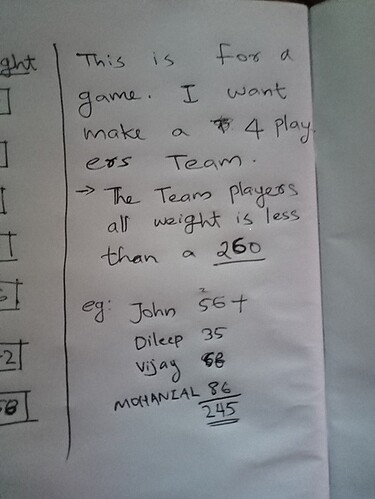 ght
This is for a
game. I want
make a 4 play
ers Team.
→ The Team players
all weight is less
than a 260
eg: John 56+
Dileep 35
Vijay 68
MOHANIAL 86
245